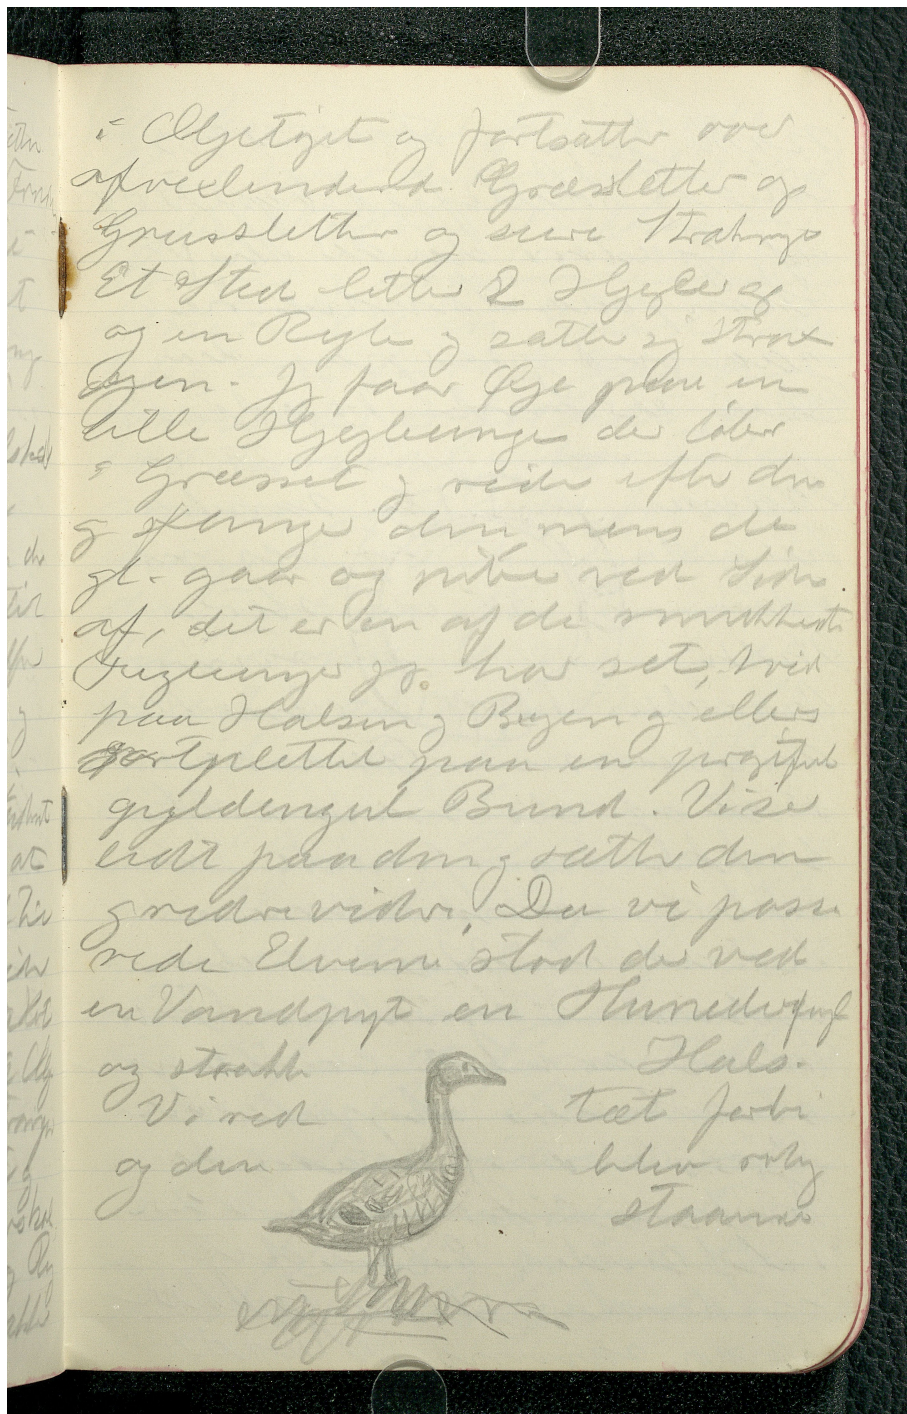 i Oljetøjet og fortsætter over
afvexlende Græssletter og
Grussletter og sure Strækninger
Et Sted letter 2 Hjejler og
og en Ryle og sætter sig strax
igen. Jeg faar Øje paa en
lille Hjejleunge der løber
i Græsset og rider efter den
og fanger den, mens de
gl. gaar og piber ved Siden
af, det er en af de smukkeste
Fugleunger jeg har set, hvid
paa Halsen og Bugen og ellers
sortplettet paa en prægtful
gyldengul Bund. Vi ser
lidt paa den og sætter den
og rider videre. Da vi passe
rede Elvene stod der ved
en Vandpyt en Hunederfugl
og strakte Hals.
Vi red tæt forbi
og den blev rolig
staaende